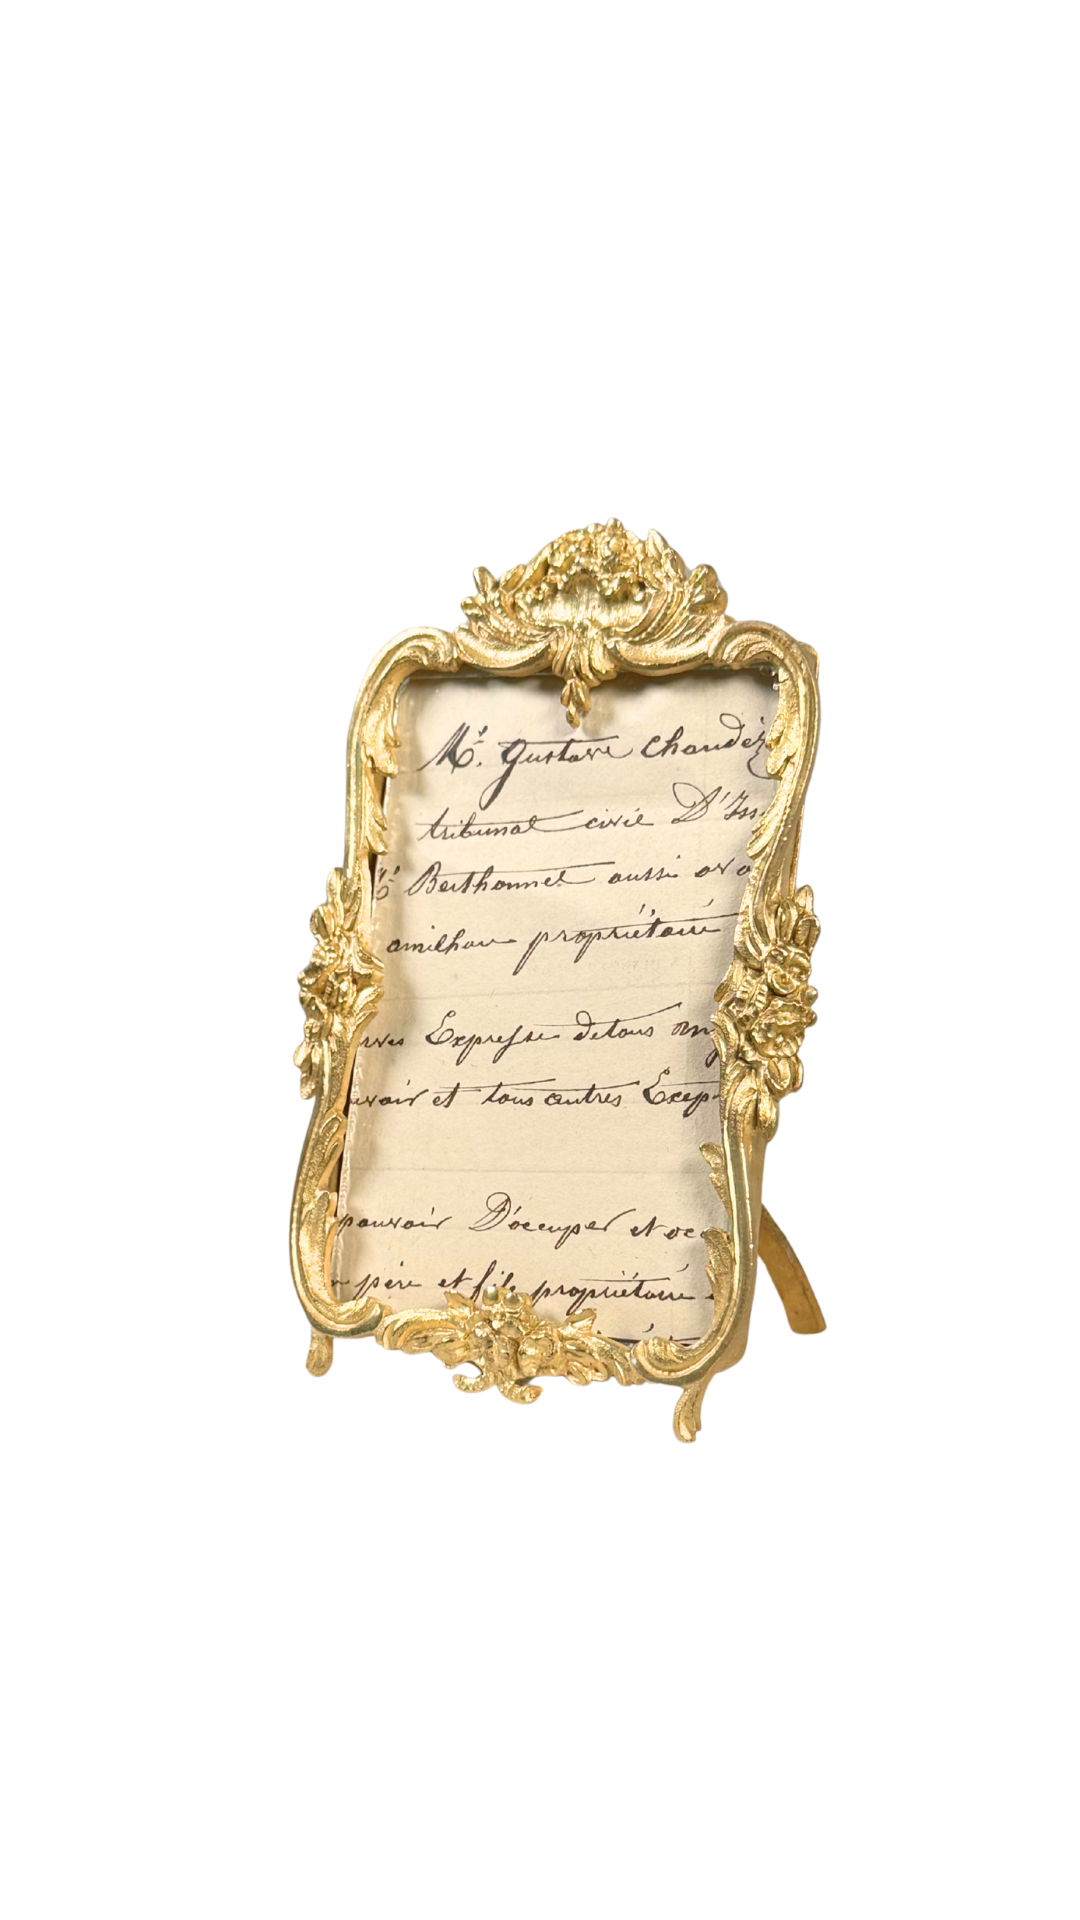 Mᵉ. Gustave Chaudez
tribunal civil D'Iss
Mᵉ Berthonnet aussi avo
amilhau propriétaire
rves Expresse detous my
uvoir et tous autres Excep
pouvoir D'occuper et occ
père et fils propriétaire